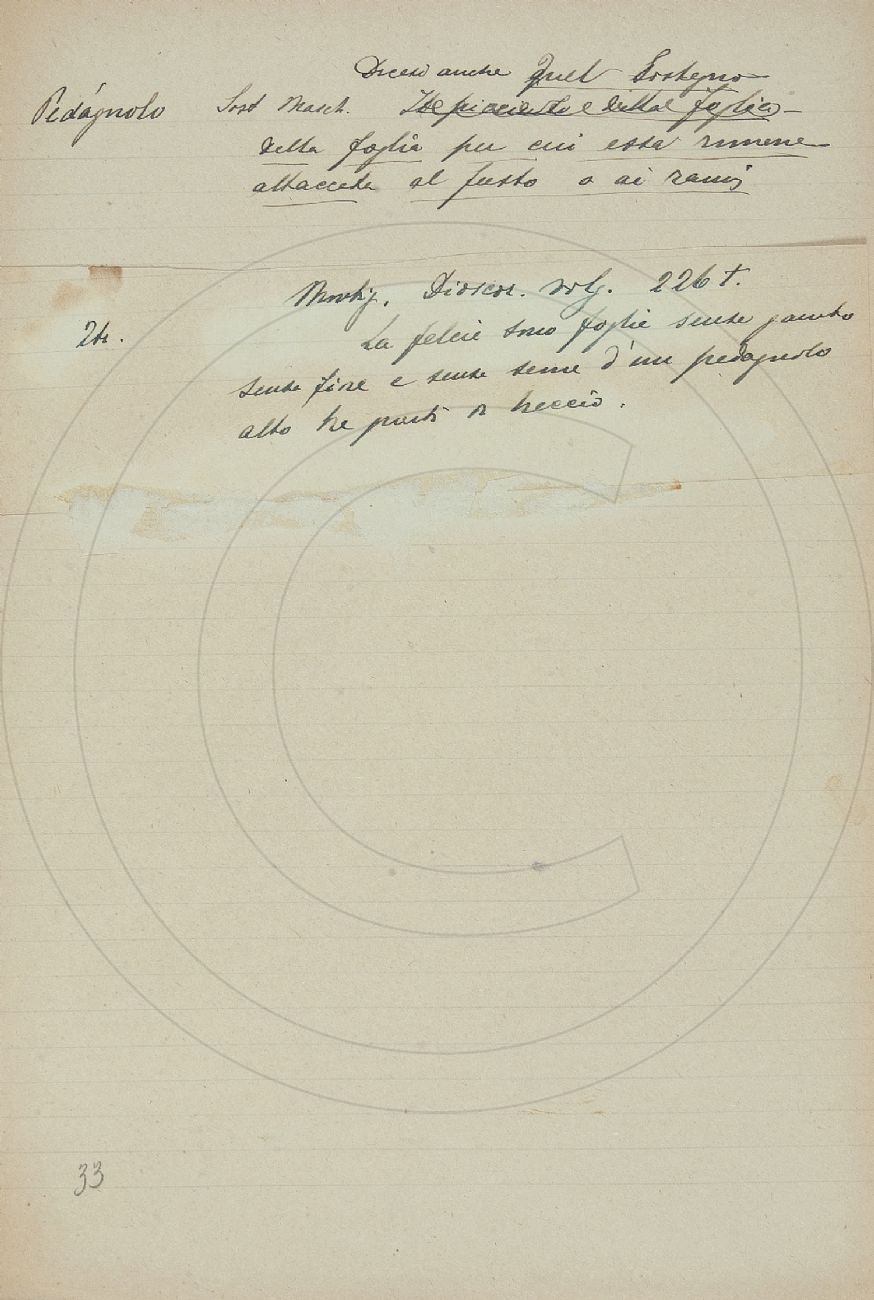 Dicesi anche Quel Sostegno
Pedágnolo Sost Masch. Il picciuolo della foglia
della foglia per cui essa rimane
attaccata al fusto o ai rami
Montig. Dioscor. volg. 226 t.
La felcie sono foglie senza gambo
senza fiore e senza seme d'un pedagnolo
alto tre parti
33